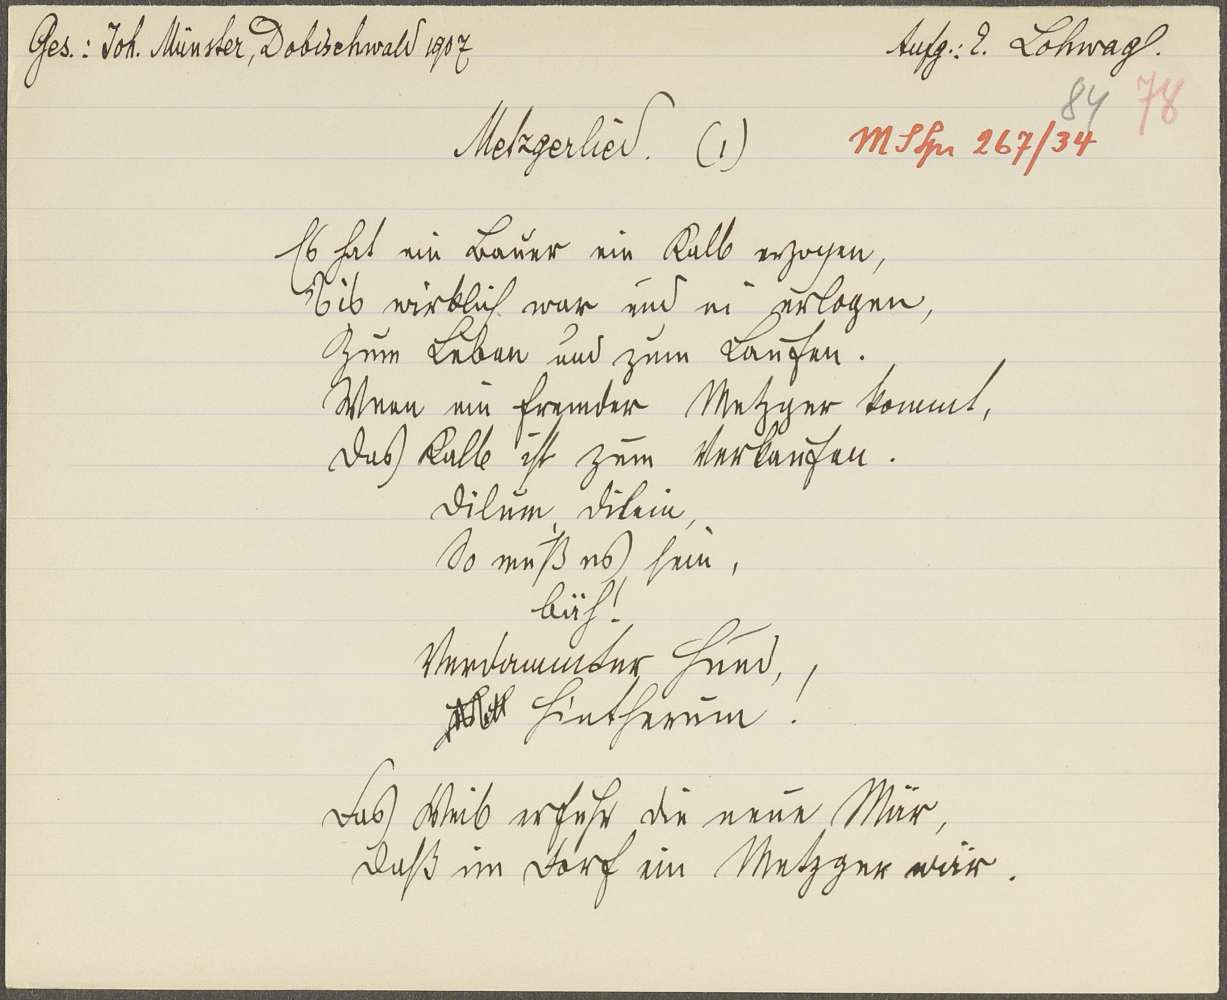 Ges.: Joh. Münster, Dobischwald 1907
Aufg.: E. Lohwag.
84 78
Metzgerlied. (1)
M Schr 267/34
Es hat ein Bauer ein Kalb erzogen,
wirklich war und erlogen,
Zum Leben und zum Laufen.
Wenn ein fremder Metzger kommt,
Das Kalb ist zum Verkaufen.
Dilum, dilein,
So muß es sein,
bäh!
Verdammter Hund,
hintherum!
Das Weib erfuhr die neue Mär,
Daß im Dorf ein Metzger wär.